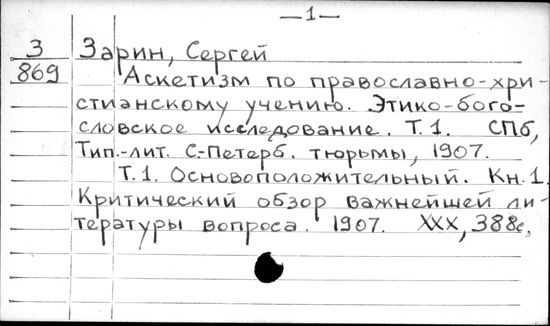 —1—
З Зарин, Сергей
869 Аскетизм по православно-хри-
стианскому учению. Этико-бого-
словское исследование. Т.1. СПб,
Тип.-лит. С.-Петерб. тюрьмы, 1907.
Т.1. Основоположительный. Кн.1.
Критический обзор важнейшей ли-
тературы вопроса. 1907. XXX, 388с.